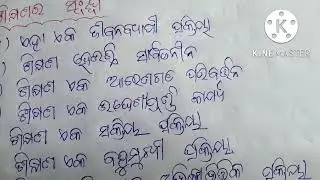 ଶିକ୍ଷଣର ସଂଜ୍ଞା
) ଏହା ଏକ ଜୀବନବ୍ୟାପୀ ପ୍ରକ୍ରିୟା
) ଶିକ୍ଷଣ ହେଉଛି ସାର୍ବଜନୀନ
) ଶିକ୍ଷଣ ଏକ ଆଚରଣଗତ ପରିବର୍ତ୍ତନ
ଶିକ୍ଷଣ ଏକ ଉଦ୍ଦେଶ୍ୟମୂଳକ କାର୍ଯ୍ୟ
ଶିକ୍ଷଣ ଏକ ସକ୍ରିୟ ପ୍ରକ୍ରିୟା
ଶିକ୍ଷଣ ଏକ ବହୁମୁଖୀ ପ୍ରକ୍ରିୟା
ଏକ ପ୍ରକ୍ରିୟା
KINEMASTER